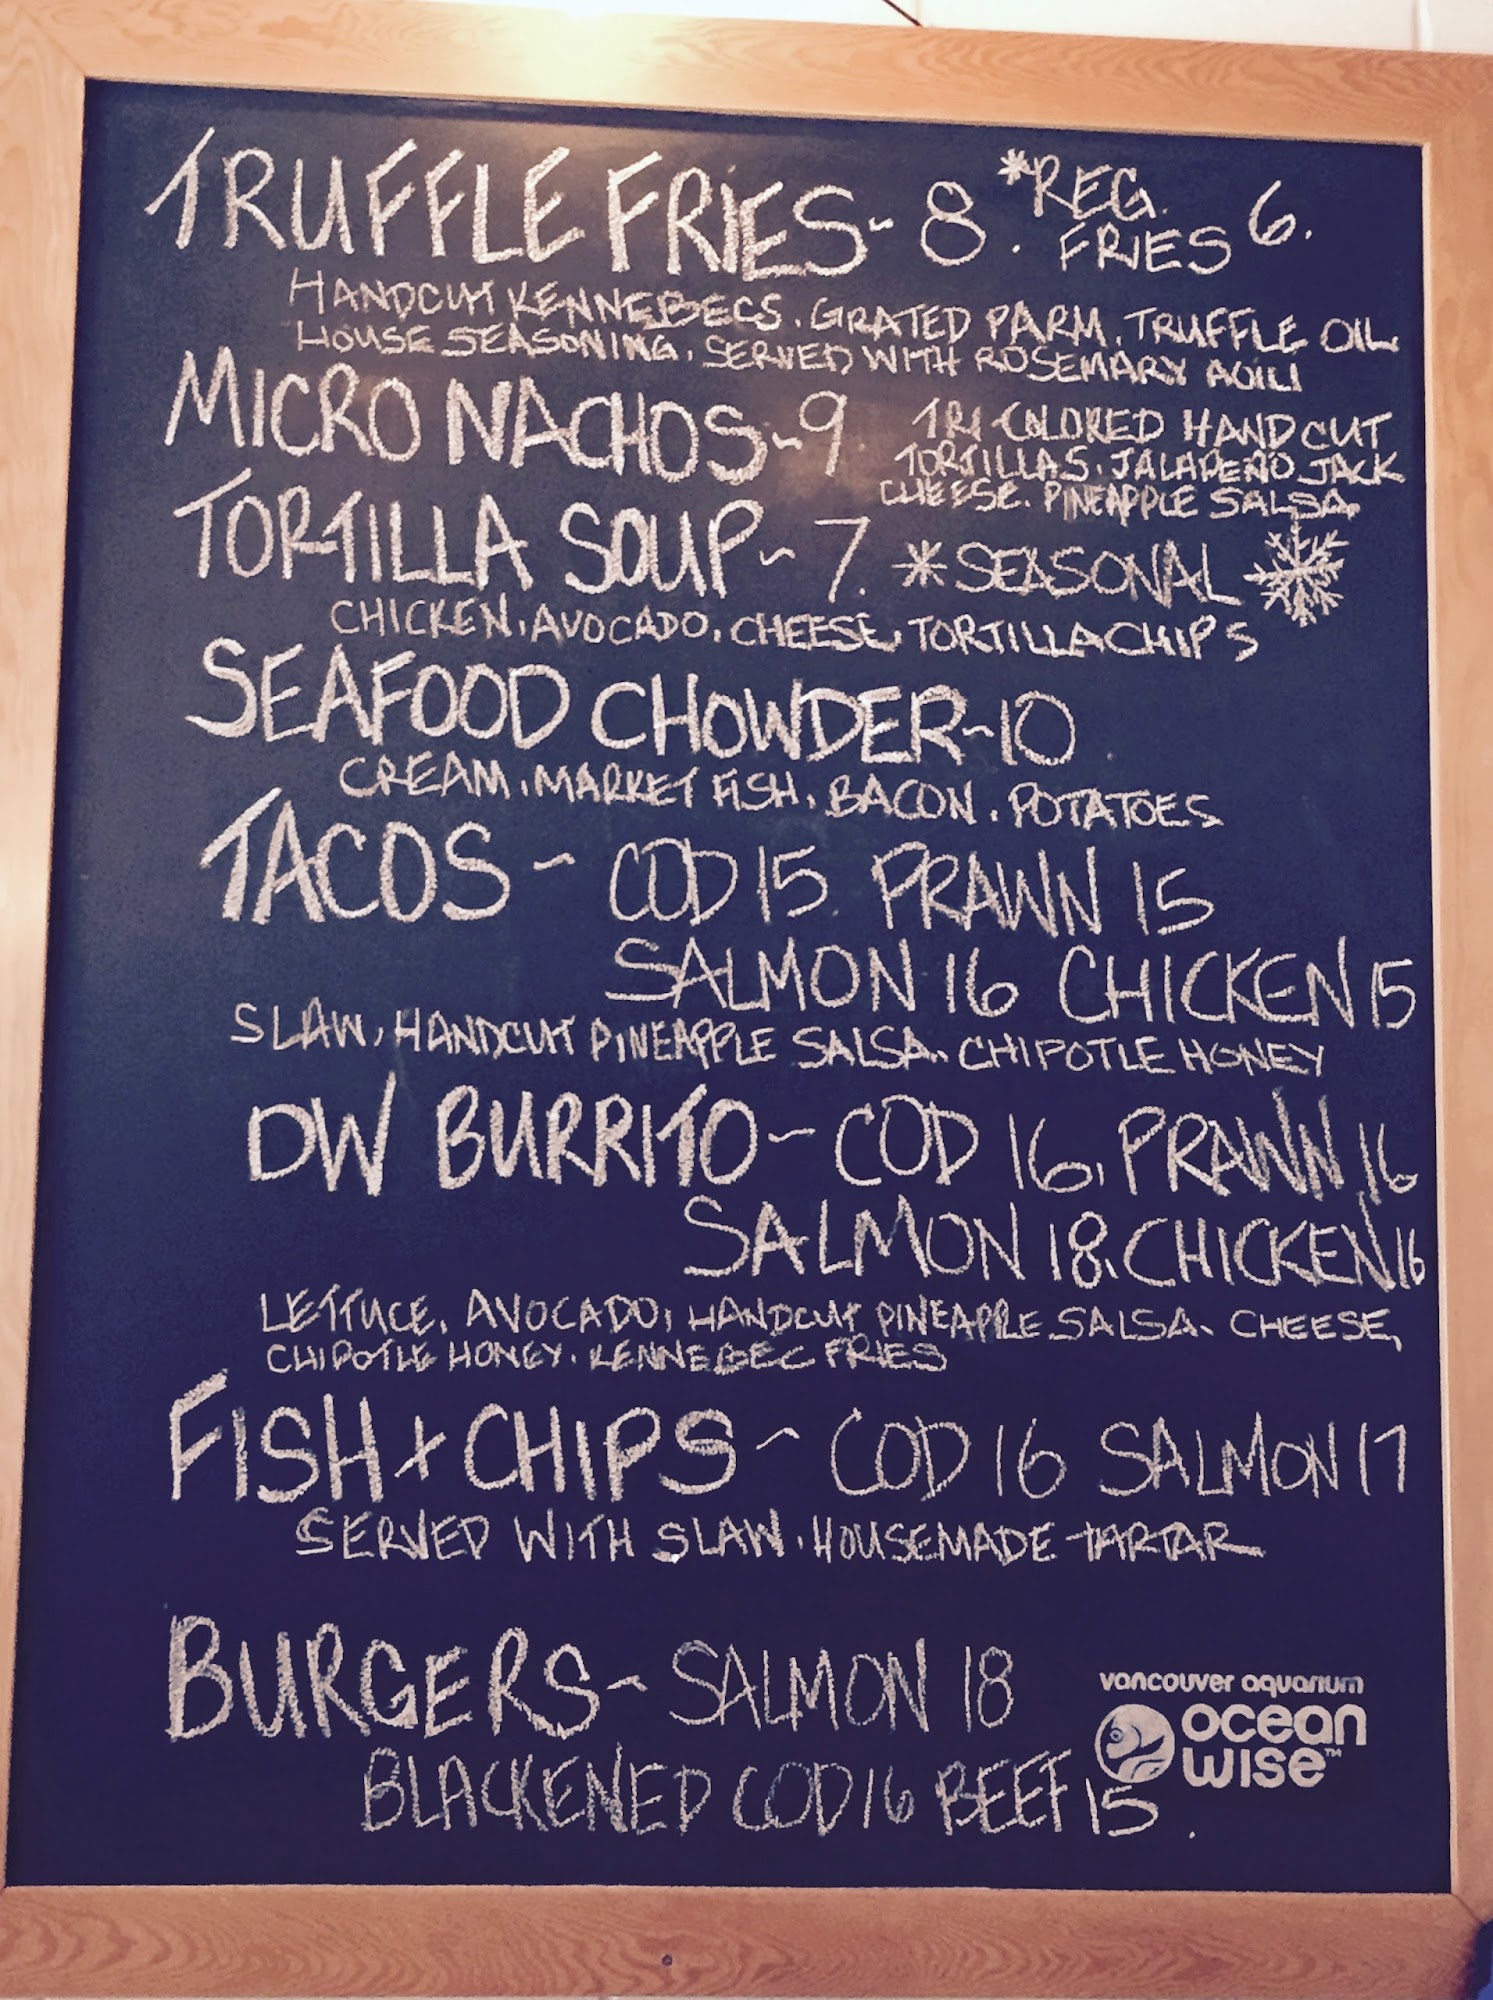 TRUFFLE FRIES ~ 8. *REG. FRIES 6.
HANDCUT KENNEBECS. GRATED PARM. TRUFFLE OIL
HOUSE SEASONING. SERVED WITH ROSEMARY AOILI
MICRO NACHOS ~ 9
TRI-COLORED HANDCUT
TORTILLAS. JALAPEÑO JACK
CHEESE. PINEAPPLE SALSA
TORTILLA SOUP ~ 7. *SEASONAL
CHICKEN, AVOCADO, CHEESE, TORTILLA CHIPS
SEAFOOD CHOWDER ~ 10
CREAM. MARKET FISH. BACON. POTATOES
TACOS ~ COD 15 PRAWN 15
SALMON 16 CHICKEN 15
SLAW, HANDCUT PINEAPPLE SALSA. CHIPOTLE HONEY
DW BURRITO ~ COD 16, PRAWN 16
SALMON 18, CHICKEN 16
LETTUCE, AVOCADO, HANDCUT PINEAPPLE SALSA. CHEESE,
CHIPOTLE HONEY. KENNEBEC FRIES
FISH + CHIPS ~ COD 16 SALMON 17
SERVED WITH SLAW. HOUSEMADE TARTAR
BURGERS ~ SALMON 18
BLACKENED COD 16 BEEF 15.
vancouver aquarium
ocean
wise™